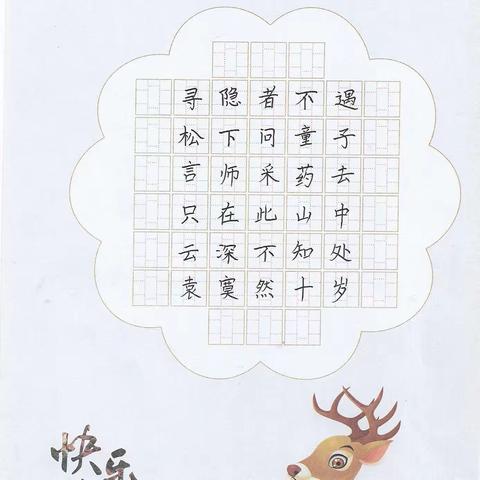 寻隐者不遇
松下问童子
言师采药去
只在此山中
云深不知处
袁寞然十岁
快乐